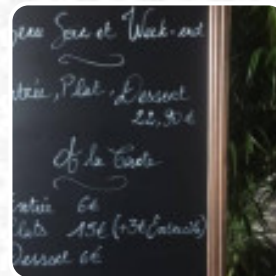 Menu Soir et Week-end
Entrée, Plat, Dessert
22,90 €
A la Carte
Entrée 6€
Plats 15€ (+3€ Entrecôte)
Dessert 6€